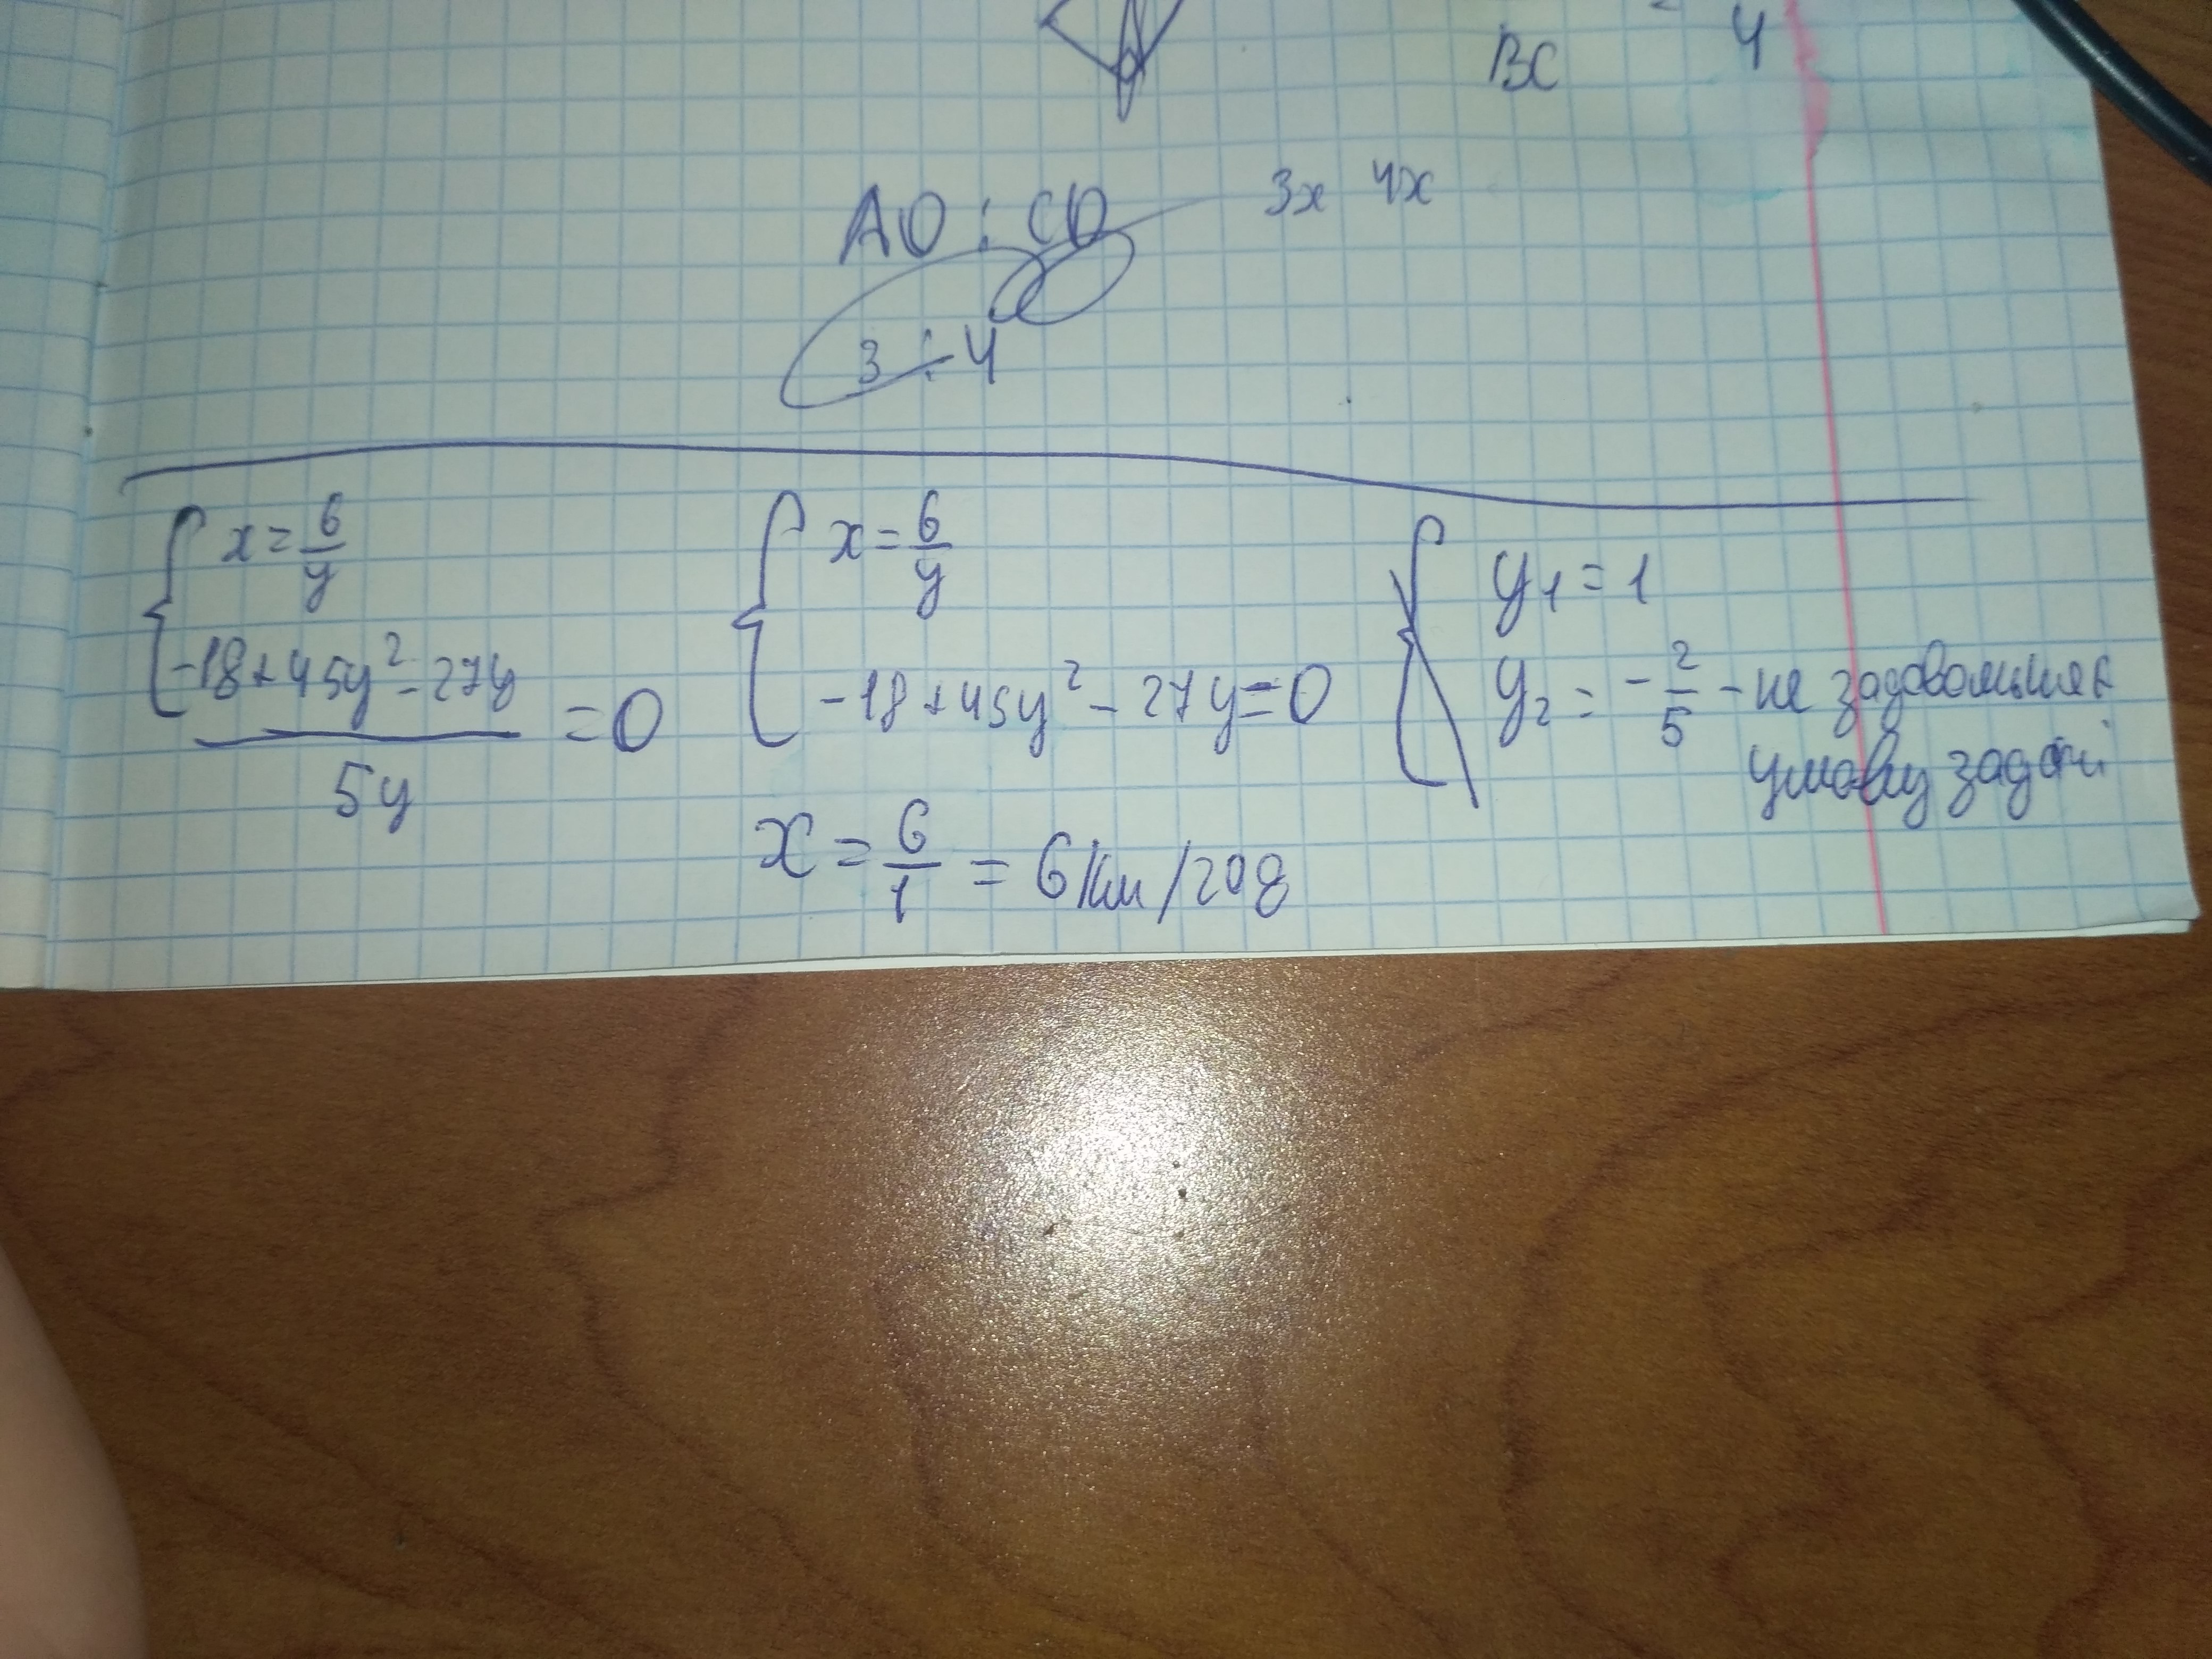 BC 4
AO : CO 3x 4x
3 ÷ 4
x = 6/y
-18+45y²-27y/5y = 0
x = 6/y
-18+45y²-27y=0
y₁ = 1
y₂ = -2/5 - не задовольняє
умову задачі
x = 6/1 = 6 км/год